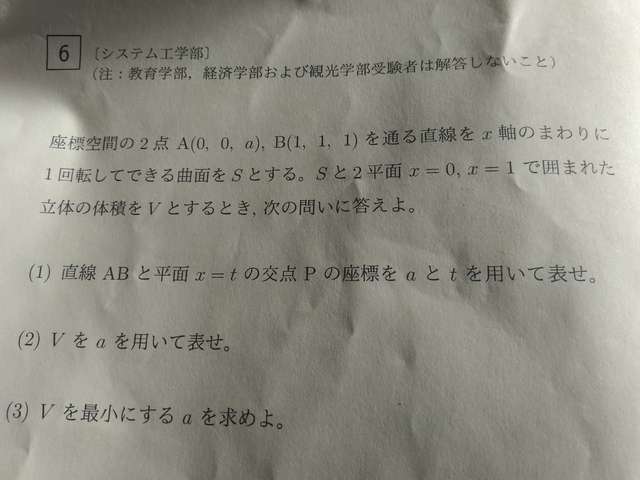 6 〔システム工学部〕
(注：教育学部，経済学部および観光学部受験者は解答しないこと)
座標空間の 2 点 A(0, 0, a), B(1, 1, 1) を通る直線を x 軸のまわりに
1 回転してできる曲面を S とする。S と 2 平面 x = 0, x = 1 で囲まれた
立体の体積を V とするとき, 次の問いに答えよ。
(1) 直線 AB と平面 x = t の交点 P の座標を a と t を用いて表せ。
(2) V を a を用いて表せ。
(3) V を最小にする a を求めよ。